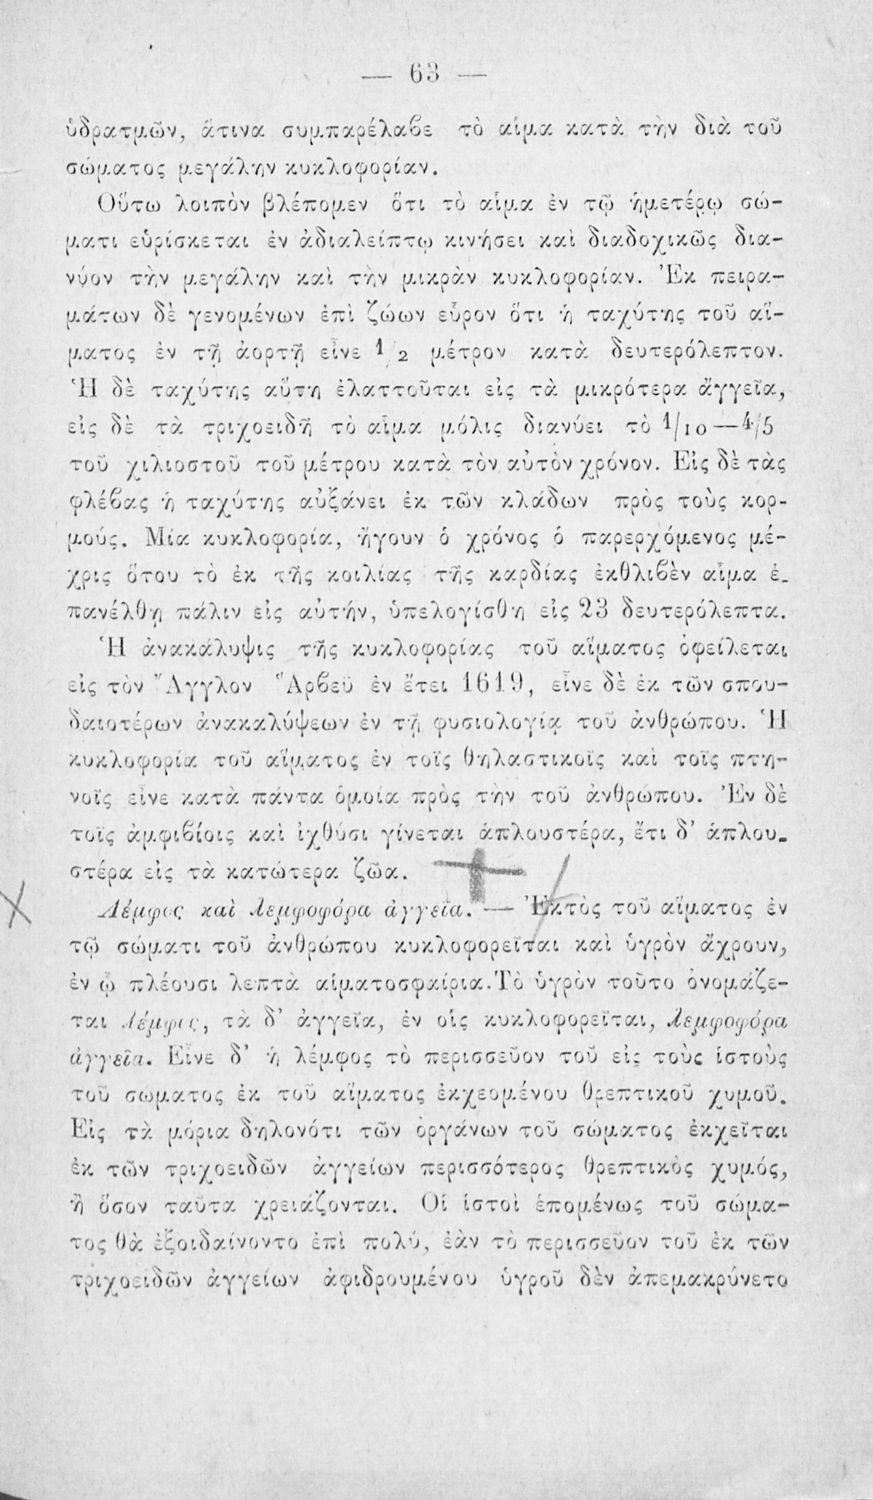 — 63 —
ὑδρατμῶν, ἅτινα συμπαρέλαβε τὸ αἷμα κατὰ τὴν διὰ τοῦ
σώματος μεγάλην κυκλοφορίαν.
Οὕτω λοιπὸν βλέπομεν ὅτι τὸ αἷμα ἐν τῷ ἡμετέρῳ σώ-
ματι εὑρίσκεται ἐν ἀδιαλείπτῳ κινήσει καὶ διαδοχικῶς δια-
νύον τὴν μεγάλην καὶ τὴν μικρὰν κυκλοφορίαν. Ἐκ πειρα-
μάτων δὲ γενομένων ἐπὶ ζώων εὗρον ὅτι ἡ ταχύτης τοῦ αἵ-
ματος ἐν τῇ ἀορτῇ εἶνε 1/2 μέτρον κατὰ δευτερόλεπτον.
Ἡ δὲ ταχύτης αὕτη ἐλαττοῦται εἰς τὰ μικρότερα ἄγγεῖα,
εἰς δὲ τὰ τριχοειδῆ τὸ αἷμα μόλις διανύει τὸ 1/10—4/5
τοῦ χιλιοστοῦ τοῦ μέτρου κατὰ τὸν αὐτὸν χρόνον. Εἰς δὲ τὰς
φλέβας ἡ ταχύτης αὐξάνει ἐκ τῶν κλάδων πρὸς τοὺς κορ-
μούς. Μία κυκλοφορία, ἤγουν ὁ χρόνος ὁ παρερχόμενος μέ-
χρις ὅτου τὸ ἐκ τῆς κοιλίας τῆς καρδίας ἐκθλιβὲν αἷμα ἐ-
πανέλθῃ πάλιν εἰς αὐτήν, ὑπελογίσθη εἰς 23 δευτερόλεπτα.
Ἡ ἀνακάλυψις τῆς κυκλοφορίας τοῦ αἵματος ὀφείλεται
εἰς τὸν Ἄγγλον Ἅρβεϋ ἐν ἔτει 1619, εἶνε δὲ ἐκ τῶν σπου-
δαιοτέρων ἀνακαλύψεων ἐν τῇ φυσιολογίᾳ τοῦ ἀνθρώπου. Ἡ
κυκλοφορία τοῦ αἵματος ἐν τοῖς θηλαστικοῖς καὶ τοῖς πτη-
νοῖς εἶνε κατὰ πάντα ὁμοία πρὸς τὴν τοῦ ἀνθρώπου. Ἐν δὲ
τοῖς ἀμφιβίοις καὶ ἰχθύσι γίνεται ἁπλουστέρα, ἔτι δ' ἁπλου-
στέρα εἰς τὰ κατώτερα ζῶα.
Λέμφος καὶ λεμφοφόρα ἀγγεῖα. — Ἐκτὸς τοῦ αἵματος ἐν
τῷ σώματι τοῦ ἀνθρώπου κυκλοφορεῖται καὶ ὑγρὸν ἄχρουν,
ἐν ᾧ πλέουσι λεπτὰ αἱματοσφαίρια.Τὸ ὑγρὸν τοῦτο ὀνομάζε-
ται λέμφος, τὰ δ' ἀγγεῖα, ἐν οἷς κυκλοφορεῖται, λεμφοφόρα
ἀγγεῖα. Εἶνε δ' ἡ λέμφος τὸ περισσεῦον τοῦ εἰς τοὺς ἱστοὺς
τοῦ σώματος ἐκ τοῦ αἵματος ἐκχεομένου θρεπτικοῦ χυμοῦ.
Εἰς τὰ μόρια δηλονότι τῶν ὀργάνων τοῦ σώματος ἐκχεῖται
ἐκ τῶν τριχοειδῶν ἀγγείων περισσότερος θρεπτικὸς χυμός,
ἢ ὅσον ταῦτα χρειάζονται. Οἱ ἱστοὶ ἑπομένως τοῦ σώμα-
τος θὰ ἐξοιδαίνοντο ἐπὶ πολύ, ἐὰν τὸ περισσεῦον τοῦ ἐκ τῶν
τριχοειδῶν ἀγγείων ἀφιδρουμένου ὑγροῦ δὲν ἀπεμακρύνετο